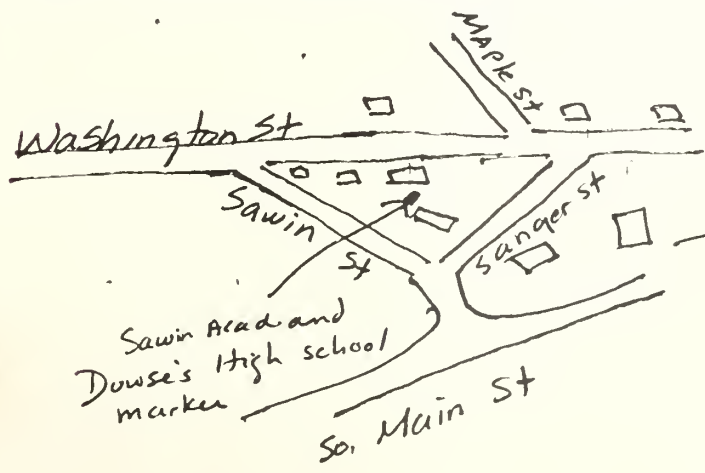 Maple St
Washington St
Sawin
St
Sanger St
Sawin Acad and
Dowse's High school
marker
So. Main St